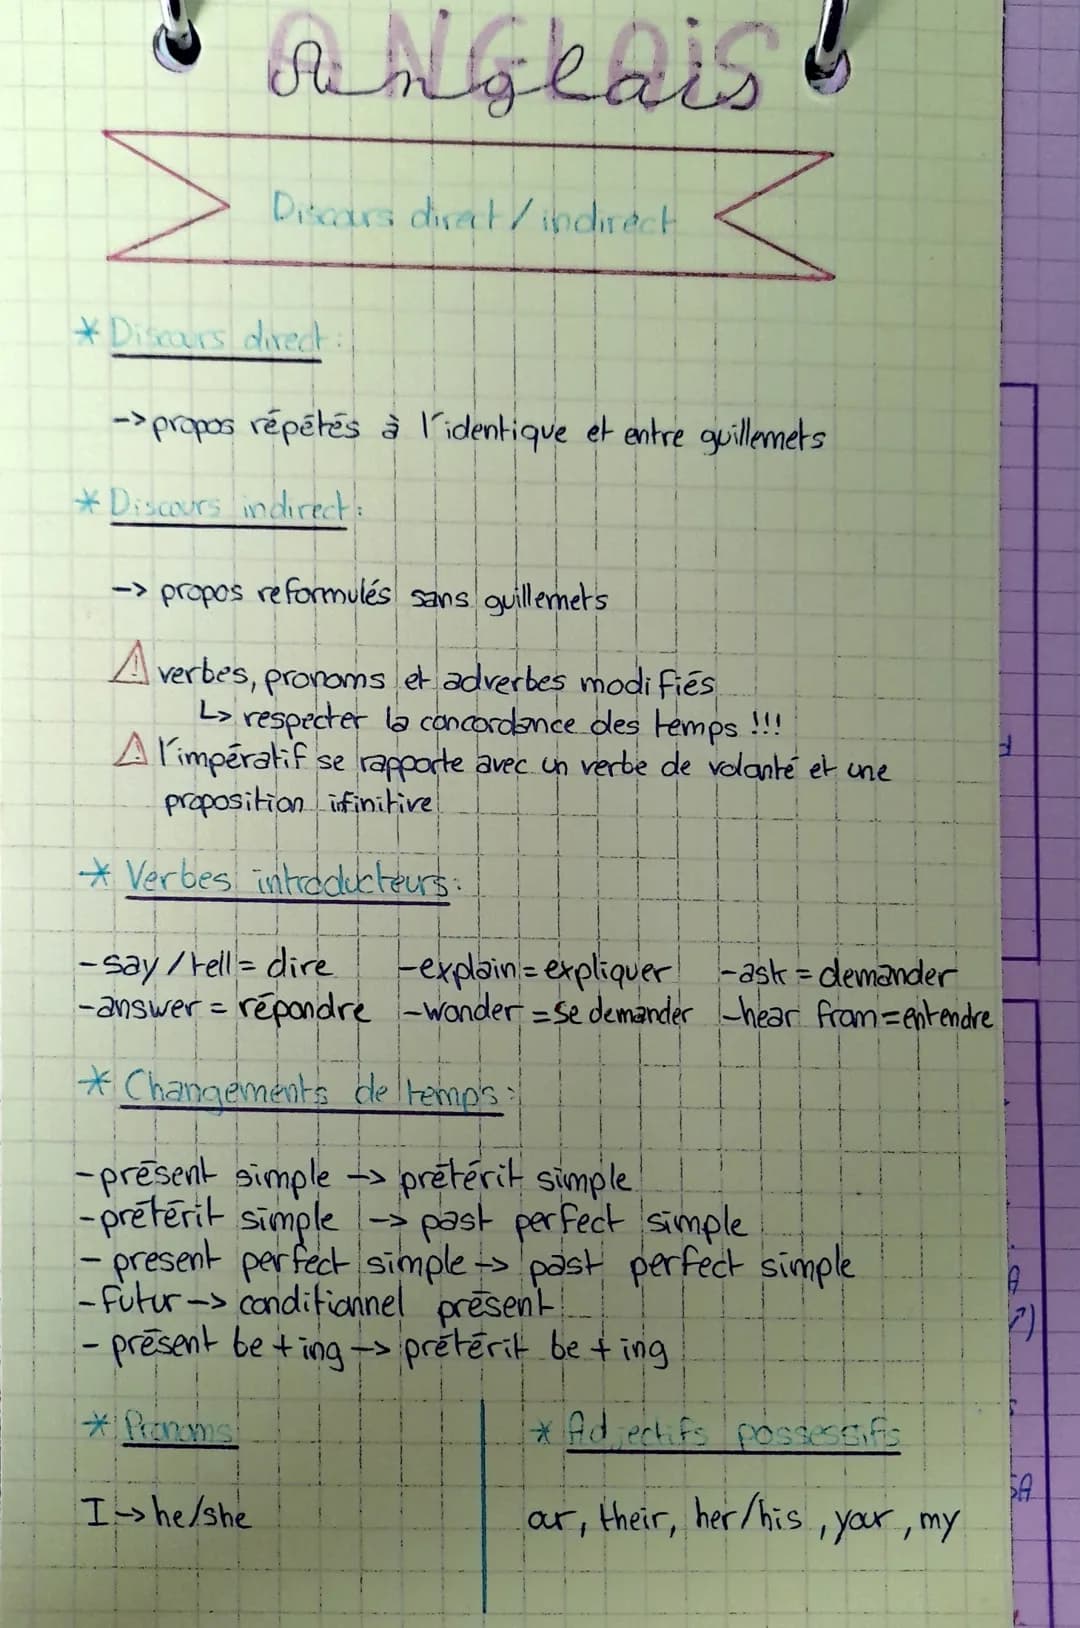 ANGLAIS
Anglais
Discours direct / indirect
* Discours direct :
-> propos répétés à l'identique et entre guillemets
* Discours indirect :
-> propos reformulés sans guillemets
⚠ verbes, pronoms et adverbes modifiés
↳ respecter la concordance des temps !!!
⚠ l'impératif se rapporte avec un verbe de volonté et une
proposition ifinitive
* Verbes introducteurs :
- say / tell = dire - explain = expliquer - ask = demander
- answer = répondre - wonder = se demander - hear from = entendre
* Changements de temps :
- présent simple -> prétérit simple
- prétérit simple -> past perfect simple
- present perfect simple -> past perfect simple
- futur -> conditionnel présent
- présent be + ing -> prétérit be + ing
* Pronoms
I -> he/she
* Adjectifs possessifs
our, their, her/his, your, my